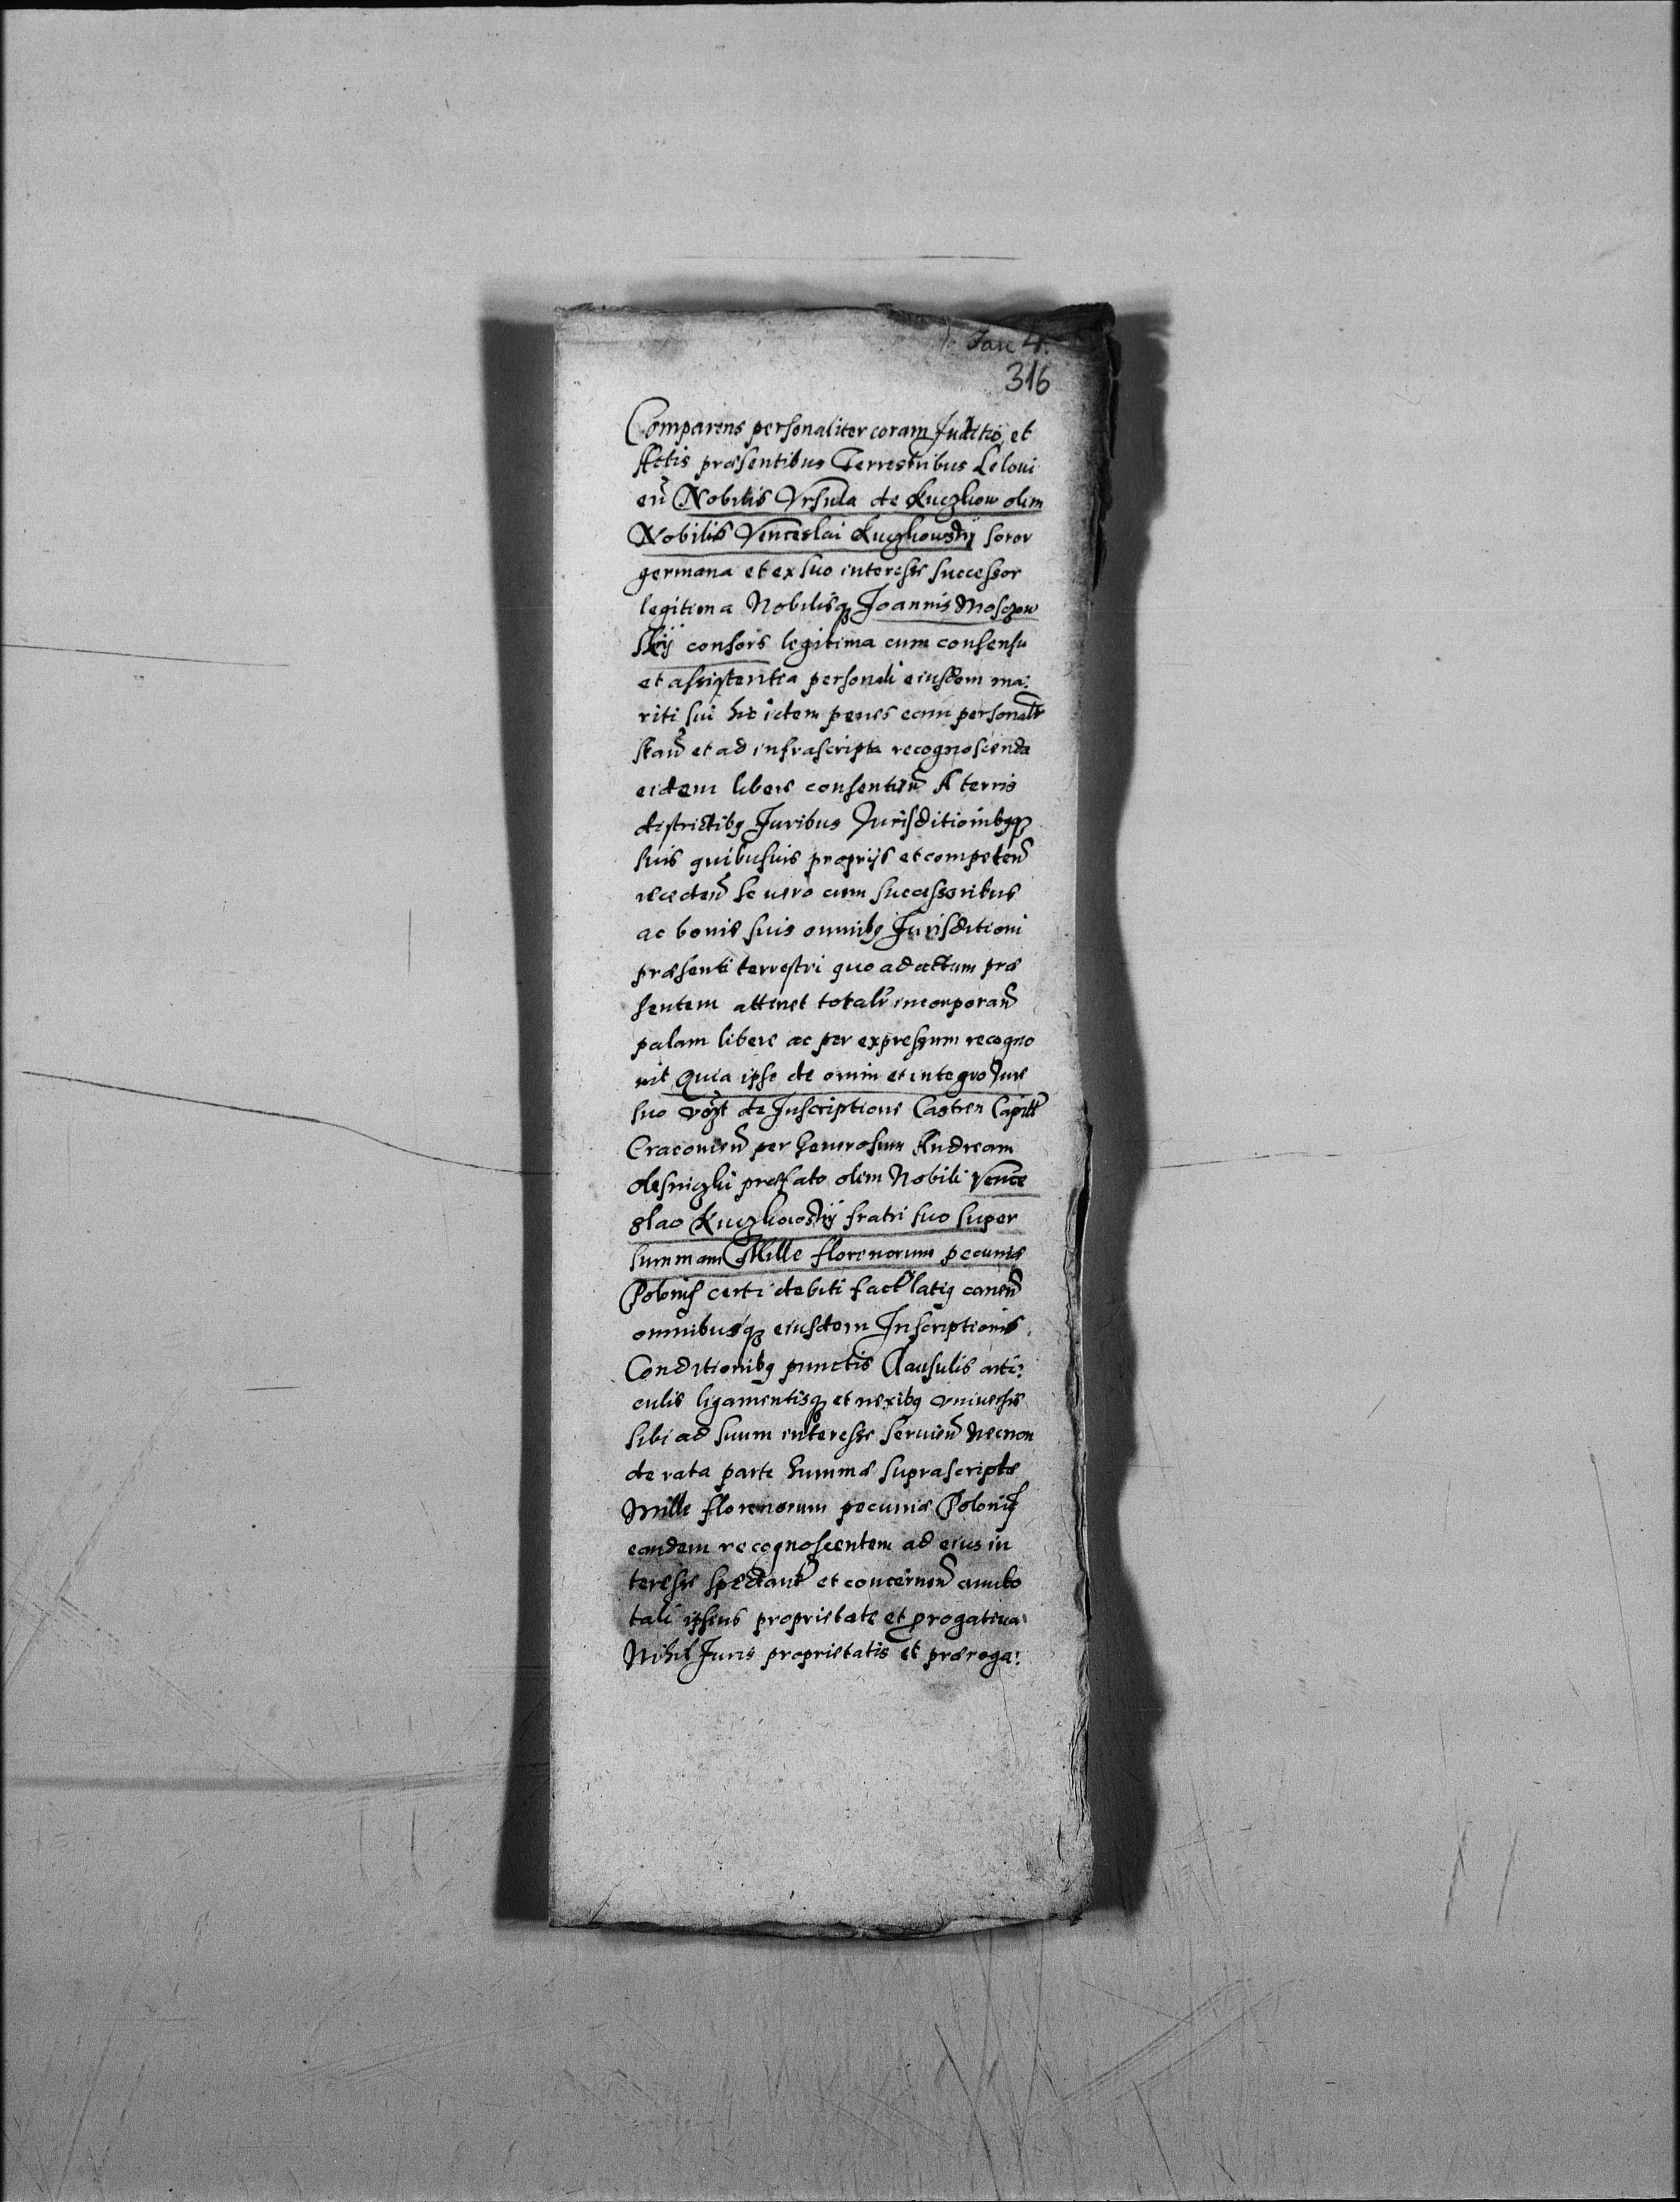 Jan 4.
316
Comparens personaliter coram Juditio et
Actis præsentibus Terrestribus Leloui
eñ Nobilis Vrsula de Kuczkow olim
Nobilis Venceslai Kuczkowskij soror
germana et ex suo interesse successor
legitima Nobilisq₃ Joannis Moszow
skij consors legitima cum consensu
et assistentia personali eiusdem ma:
riti sui hic idem penes eam personalr
stañ et ad infrascripta recognoscenda
eidem libere consentieñ A terris
districtibq Juribus Jurisditionibqq₃
suis quibusuis proprijs et competeñ
recedeñ se uero cum successoribus
ac bonis suis omnibq Jurisditioni
præsenti terrestri quo ad actum præ
sentem attinet totalr incorporañ
palam libere ac per expressum recogno
uit Quia ipsa de omni et integro Jure
suo de Inscriptione Castreñ Capitlr
Cracouieñ per Generosum Andream
præfato olim Nobili Vence
slao Kuczkowskij fratri suo super
summam Mille florenorum pecuniæ
Polonis certi debiti fact latiq caneñ
omnibusq₃ eiusdem Inscriptionis
Conditionibq punctis Clausulis arti:
culis ligamentisq₃ et nexibq vniuersis
sibi ad suum interesse seruieñ Necnon
de rata parte summæ suprascriptæ
Mille florenorum pecuniæ Polonis
eandem recognoscentem ad eius in
teresse spectant et concerneñ omnibq
tali ipsius proprietate et progatiua
Nihil Juris proprietatis et præroga: